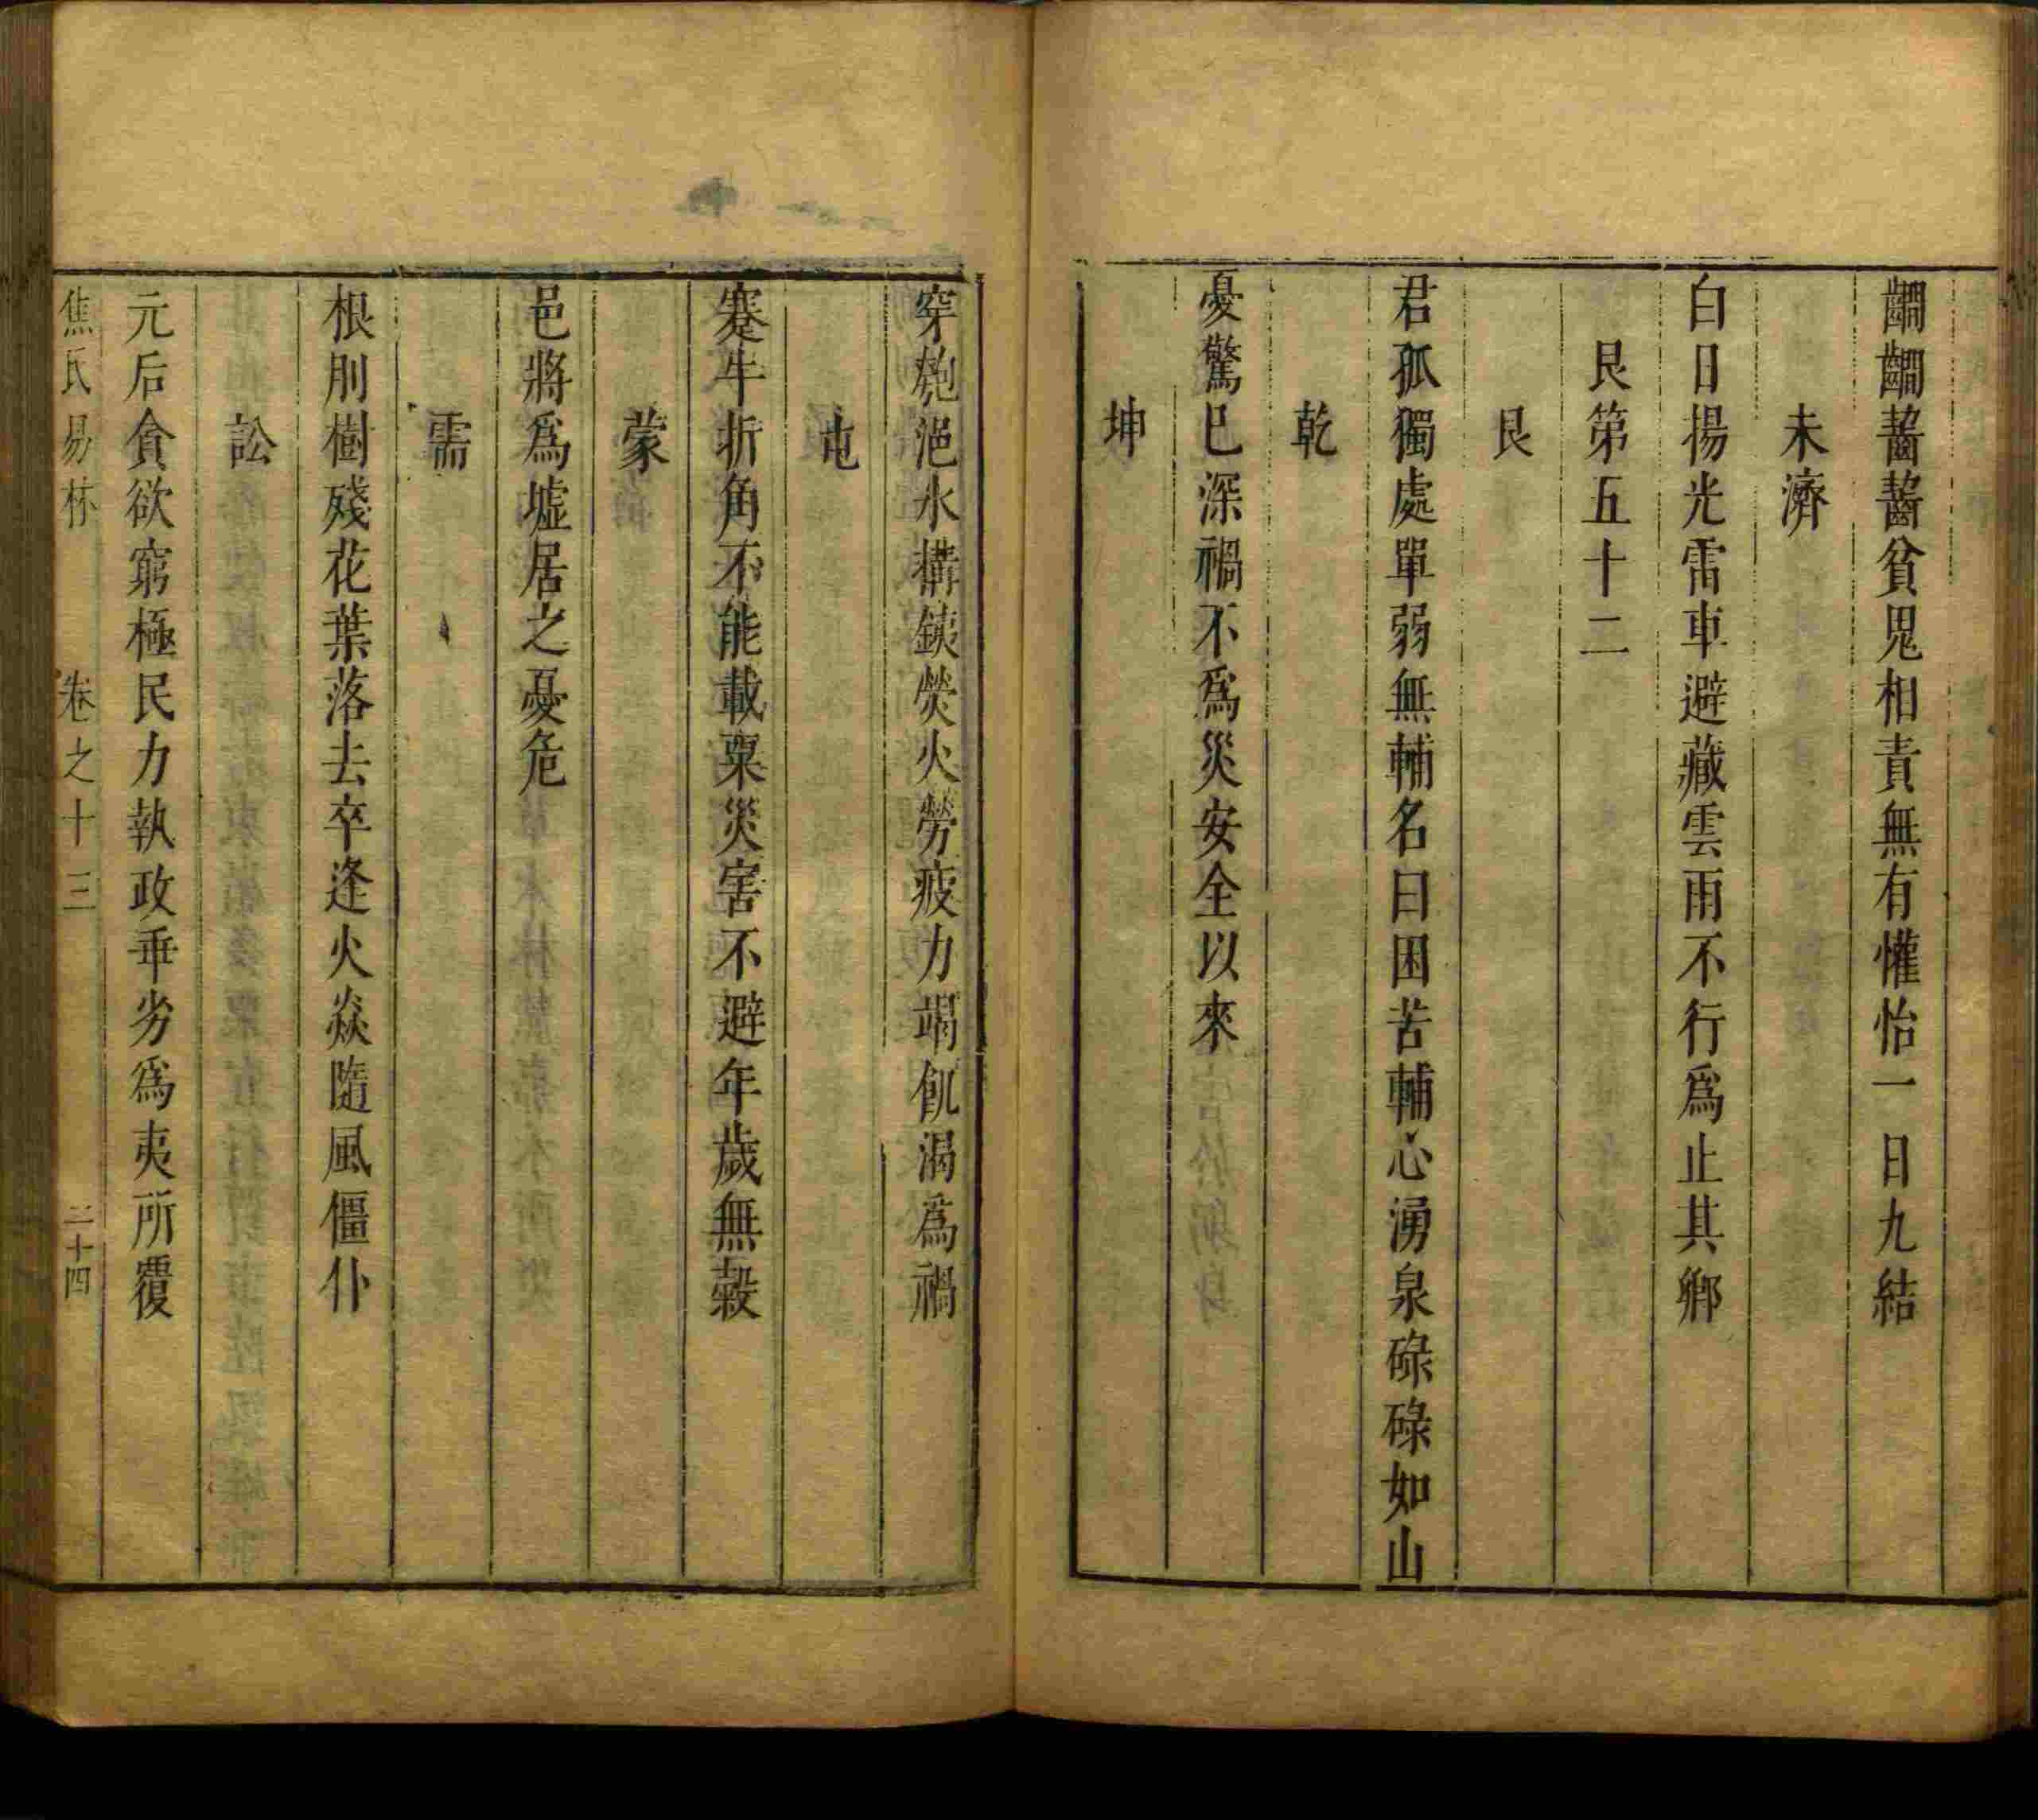 齟齟齧齧貧鬼相責無有懽怡一日九結
未濟
白日揚光雷車避藏雲雨不行爲止其鄉
艮第五十二
艮
君孤獨處單弱無輔名曰困苦輔心湧泉碌碌如山
乾
憂驚已深禍不爲災安全以來
坤
穿匏浥水構鐵熒火勞疲力竭飢渴爲禍
屯
蹇牛折角不能載粟災害不避年歲無穀
蒙
邑將爲墟居之憂危
需
根刖樹殘花葉落去卒逢火焱隨風僵仆
訟
元后貪欲窮極民力執政乖劣爲夷所覆
焦氏易林 卷之十三 三十四